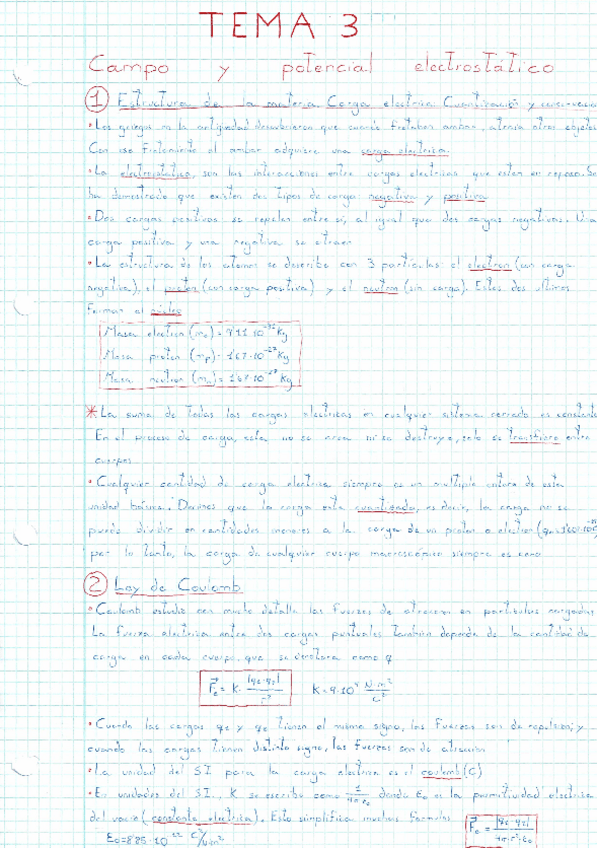 TEMA 3
Campo y potencial electrostático
1 Estructura de la materia. Carga electrica. Cuantización y conservación
• Los griegos en la antigüedad descubrieron que cuando frotaban ambar, atraia otros objetos
Con ese frotamiento el ambar adquiere una carga electrica.
• La electrostatica, son las interacciones entre cargas electricas que esten en reposo. Se
ha demostrado que existen dos tipos de carga negativa y positiva
• Dos cargas positivas se repelen entre si, al igual que dos cargas negativas. Una
carga positiva y una negativa se atraen
• La estructura de los atomos se describe con 3 particulas: el electron (con carga
negativa), el proton (con carga positiva) y el neutron (sin carga). Estos dos ultimos
forman el núcleo
Masa electron (me) = 9'11·10⁻³¹ Kg
Masa proton (mp) = 1'67·10⁻²⁷ Kg
Masa neutron (mn) = 1'67·10⁻²⁷ Kg
* La suma de todas las cargas electricas en cualquier sistema cerrado es constante
En el proceso de carga, esta no se crea ni se destruye, solo se transfiere entre
cuerpos
• Cualquier cantidad de carga electrica siempre es un multiplo entero de esta
unidad básica. Decimos que la carga esta cuantizada, es decir, la carga no se
puede dividir en cantidades menores a la carga de un proton o electron
por lo tanto, la carga de cualquier cuerpo macroscópico siempre es cero
2 Ley de Coulomb
• Coulomb estudio con mucho detalle las fuerzas de atraccion en particulas cargadas
La fuerza electrica entre dos cargas puntuales tambien depende de la cantidad de
carga en cada cuerpo, que se denotara como q
Fe = K · |q1·q2| / r² K = 9·10⁹ N·m²/C²
• Cuando las cargas q1 y q2 tienen el mismo signo, las fuerzas son de repulsion; y
cuando las cargas tienen distinto signo, las fuerzas son de atracción
• La unidad del S.I para la carga electrica es el coulomb (C)
• En unidades del S.I., K se escribe como 1/4πε0 donde ε0 es la permitividad electrica
del vacio (constante electrica). Esto simplifica muchas formulas
ε0 = 8'85·10⁻¹² C²/N·m² Fe = |q1·q2| / 4π·r²·ε0